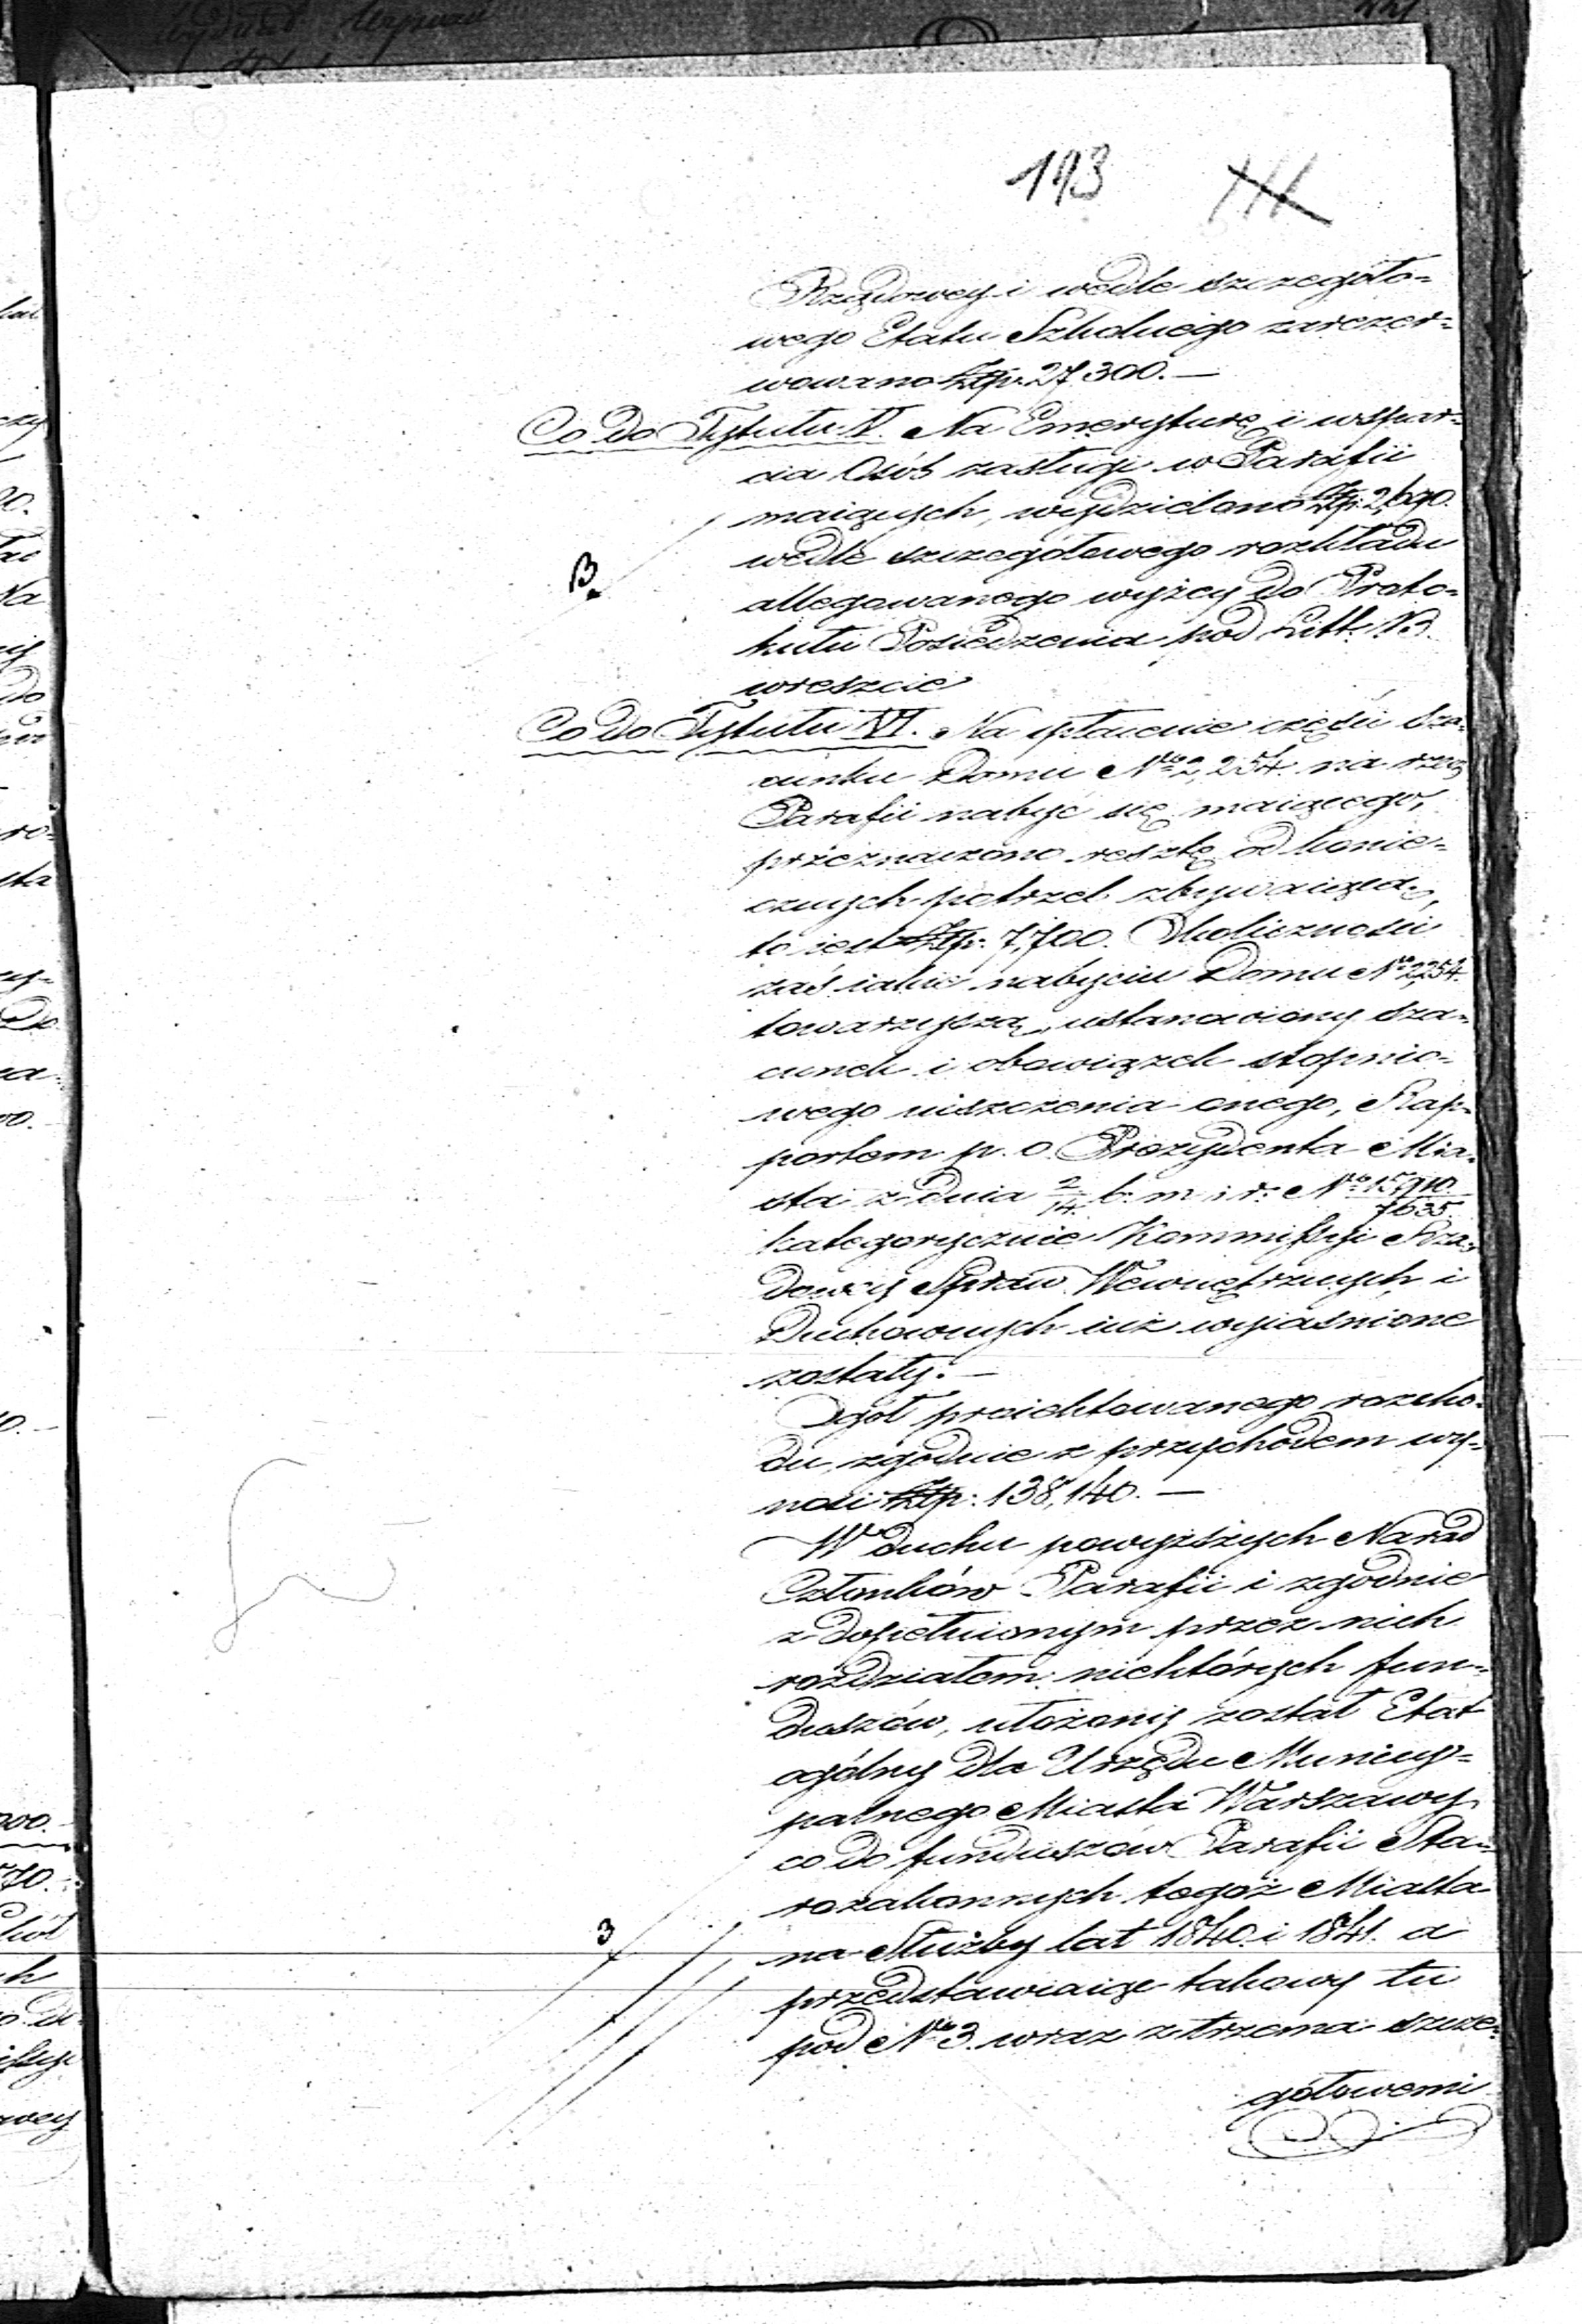 193
Rządowey i wedle szczegóło=
wego Etatu Szkolnego zarezer=
wowano Złp. 27,300.—
Co do Tytułu V. Na Emeryturę i wspar=
cia Osób zasługi w Parafii
maiących, wydzielono Złp.
wedle szczegółowego rozkładu
B.
allegowanego wyżey do Proto=
kułu Posiedzenia pod Litt. B.
wreszcie
Co do Tytułu VI. Na spłacenie części sza=
cunku Domu Nro 2,254. na rzecz
Parafii nabyć się maiącego,
przeznaczono resztę od konie=
cznych potrzeb zbywaiącą,
to iest Złp: 7,700. Okoliczności
zaś iakie nabyciu Domu Nro 2,254.
towarzyszą, ustanowiony sza=
cunek i obowiązek stopnio=
wego uiszczenia onego, Rap=
portem p. o. Prezydenta Mia=
sta z dnia 2/14 b. m. i r. Nro 15,910/7635
kategorycznie Kommissyi Rzą=
dowey Spraw Wewnętrznych i
Duchownych iuż wyiaśnione
zostały.—
Ogół proiektowanego rozcho=
du, zgodnie z przychodem wy=
nosi Złp: 138,140.—
W duchu powyższych Narad
Członków Parafii i zgodnie
z dopełnionym przez nich
rozdziałem niektórych fun=
duszów, ułożony został Etat
ogólny dla Urzędu Municy=
palnego Miasta Warszawy
co do funduszów Parafii Sta=
rozakonnych tegoż Miasta
3
na Służby lat 1840 i 1841. a
przedstawiaiąc takowy tu
pod Nro 3. wraz z trzema szcze=
gółowemi